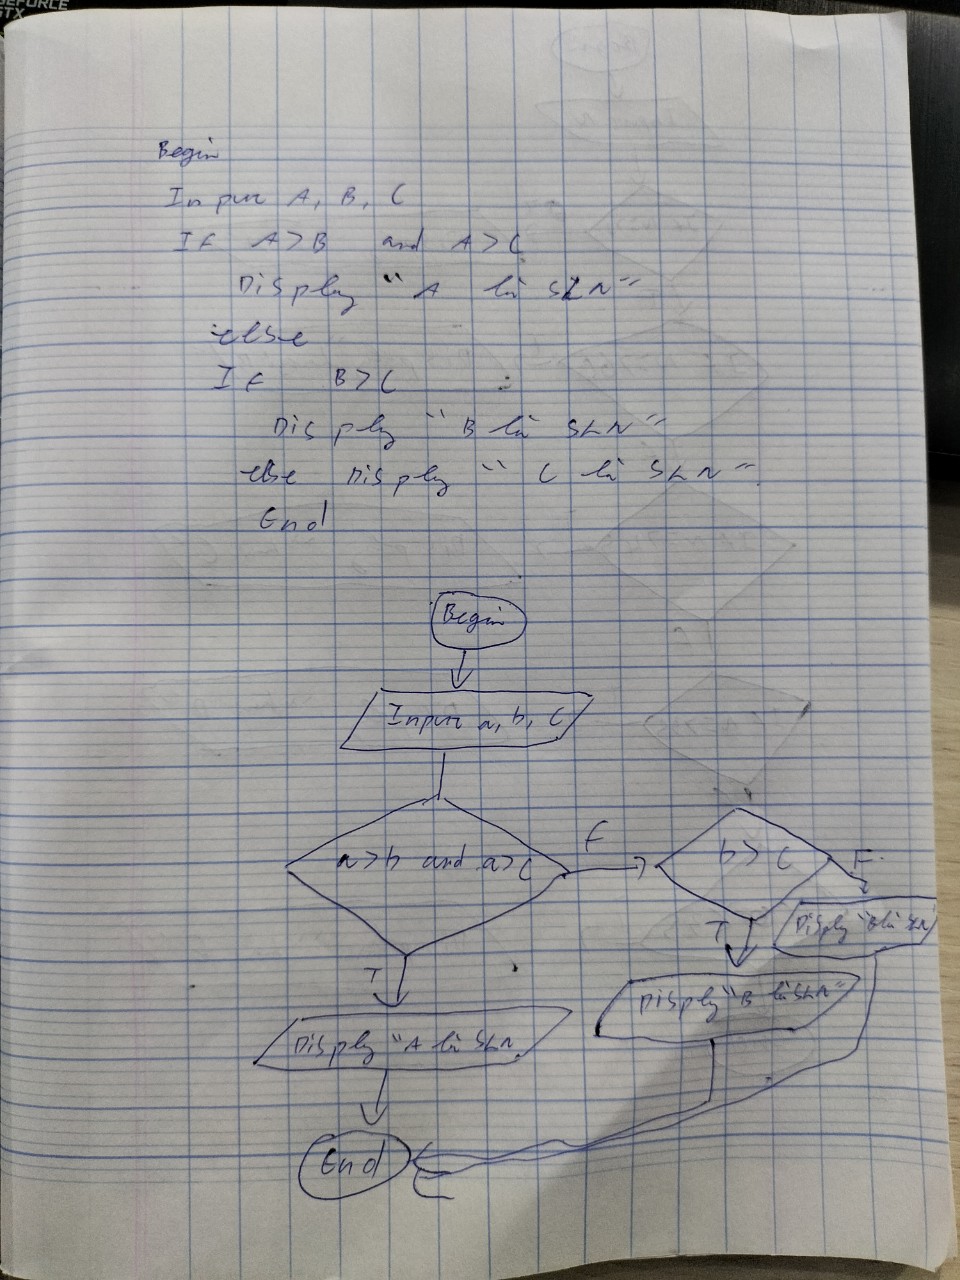 GEFORCE
GTX
Begin
Input A, B, C
If A>B and A>C
Display "A là SLN"
else
If B>C
Display "B là SLN"
else Display "C là SLN"
End
Begin
Input a, b, c
a>b and a>c
F
b>c
F
T
Display "B là SLN
T
Display "B là SLN"
Display "A là SLN
End